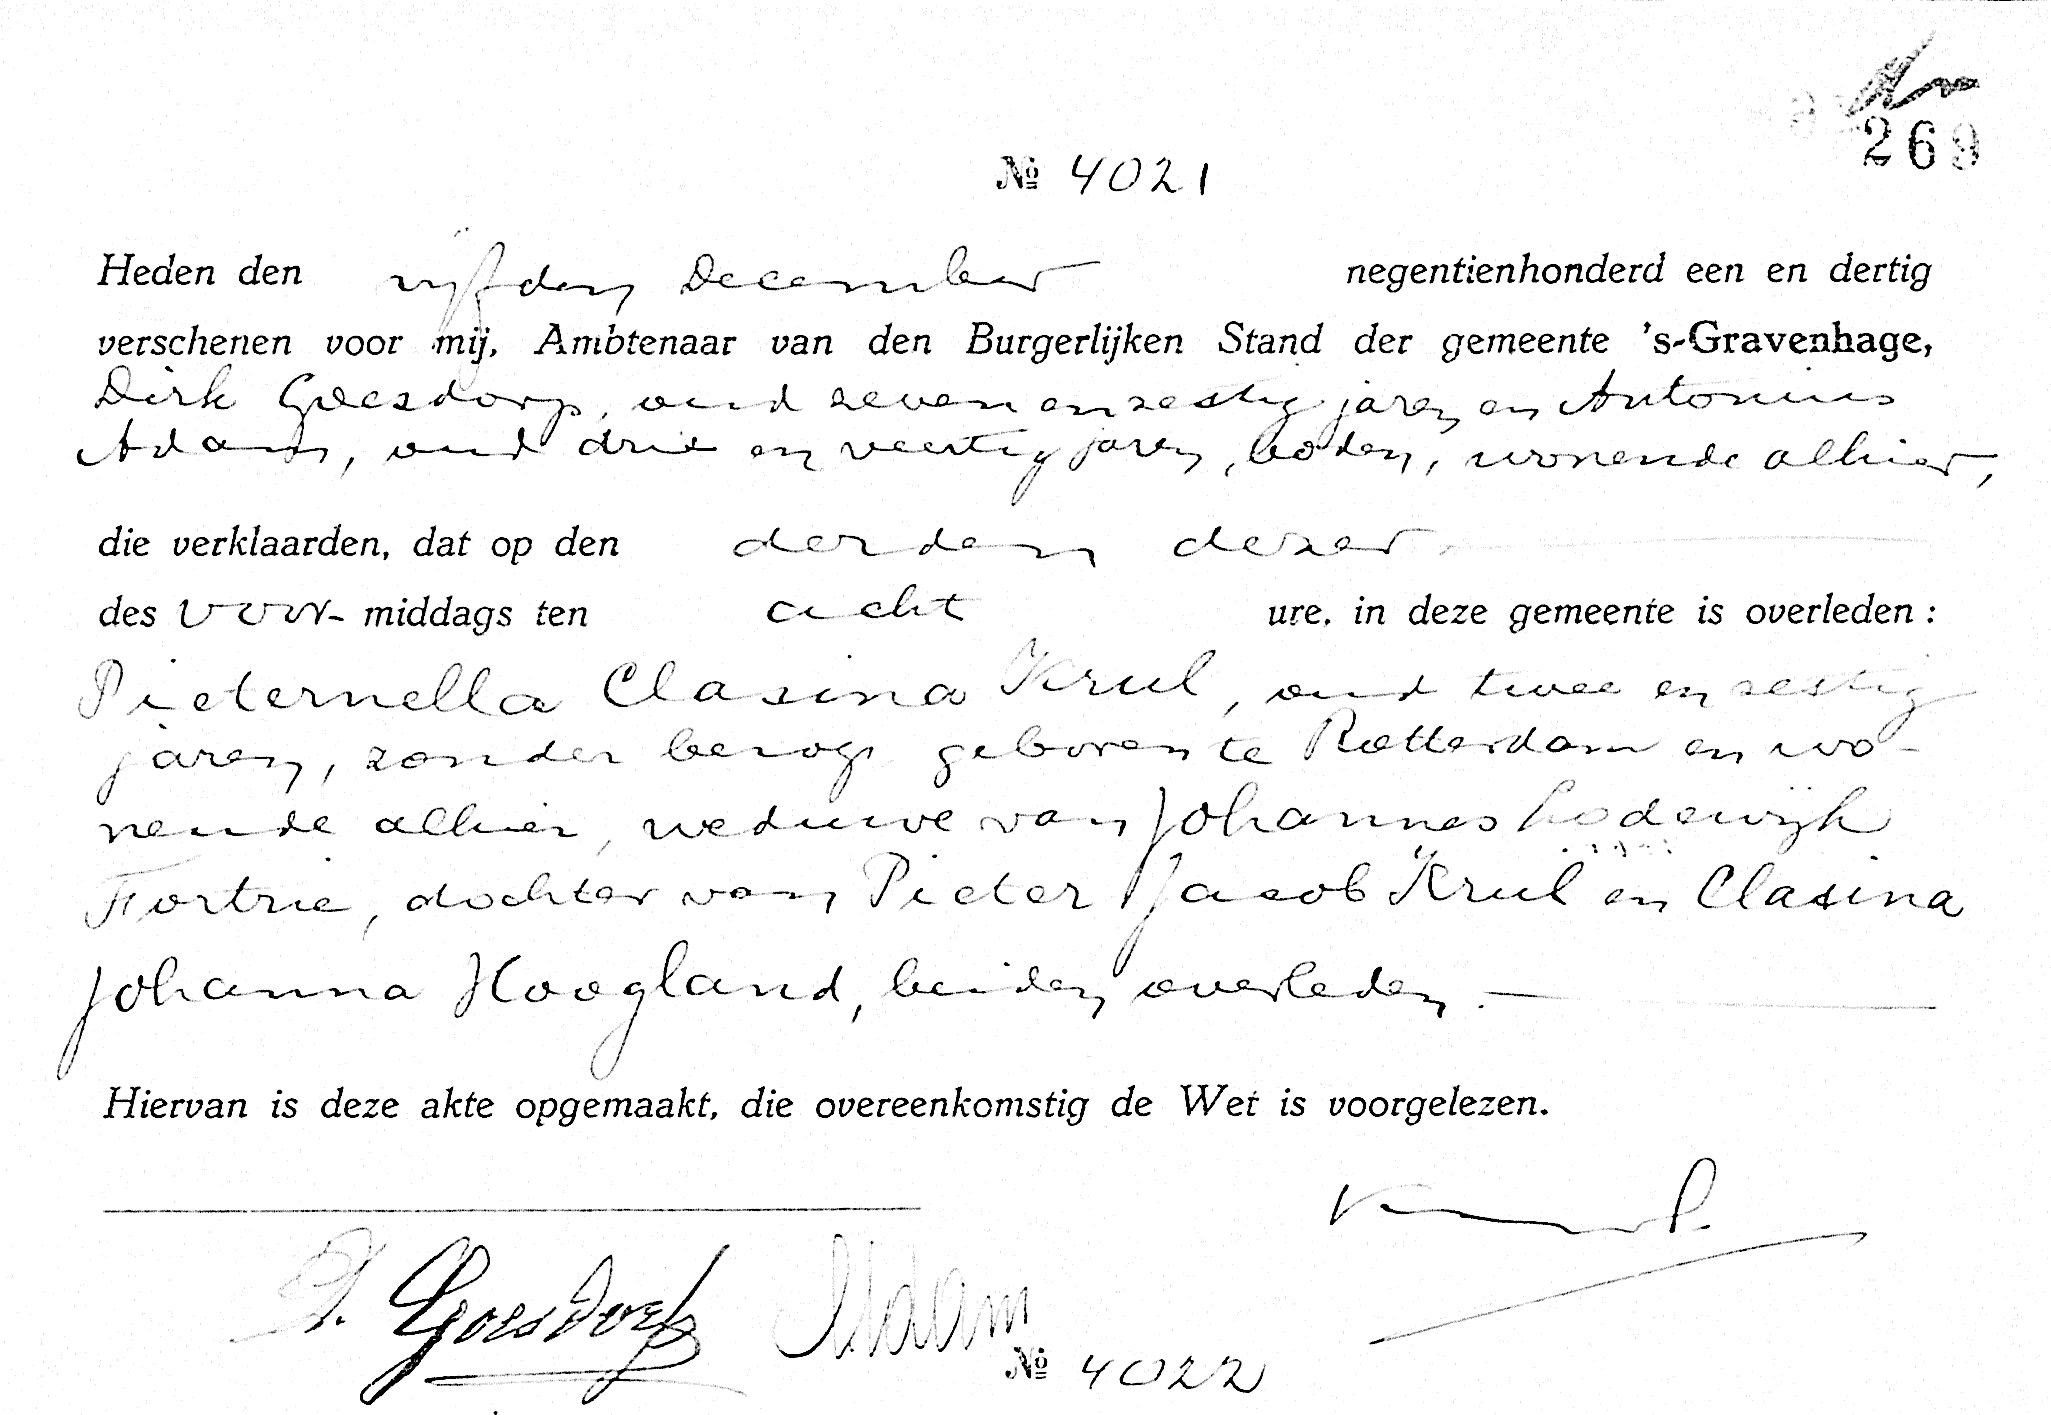 269
№ 4021
Heden den vijfden December negentienhonderd een en dertig
verschenen voor mij, Ambtenaar van den Burgerlijken Stand der gemeente 's-Gravenhage,
Dirk Goesdorp, oud zeven en zestig jaren en Antonius
Adam, oud drie en veertig jaren, boden, wonende alhier,
die verklaarden, dat op den derden dezer
des voor- middags ten acht ure, in deze gemeente is overleden:
Pieternella Clasina Krul, oud twee en zestig
jaren, zonder beroep geboren te Rotterdam en wo-
nende alhier, weduwe van Johannes Lodewijk
Fortrie, dochter van Pieter Jacob Krul en Clasina
Johanna Hoogland, beiden overleden.
Hiervan is deze akte opgemaakt, die overeenkomstig de Wet is voorgelezen.
D. Goesdorp A. Adam
№ 4022